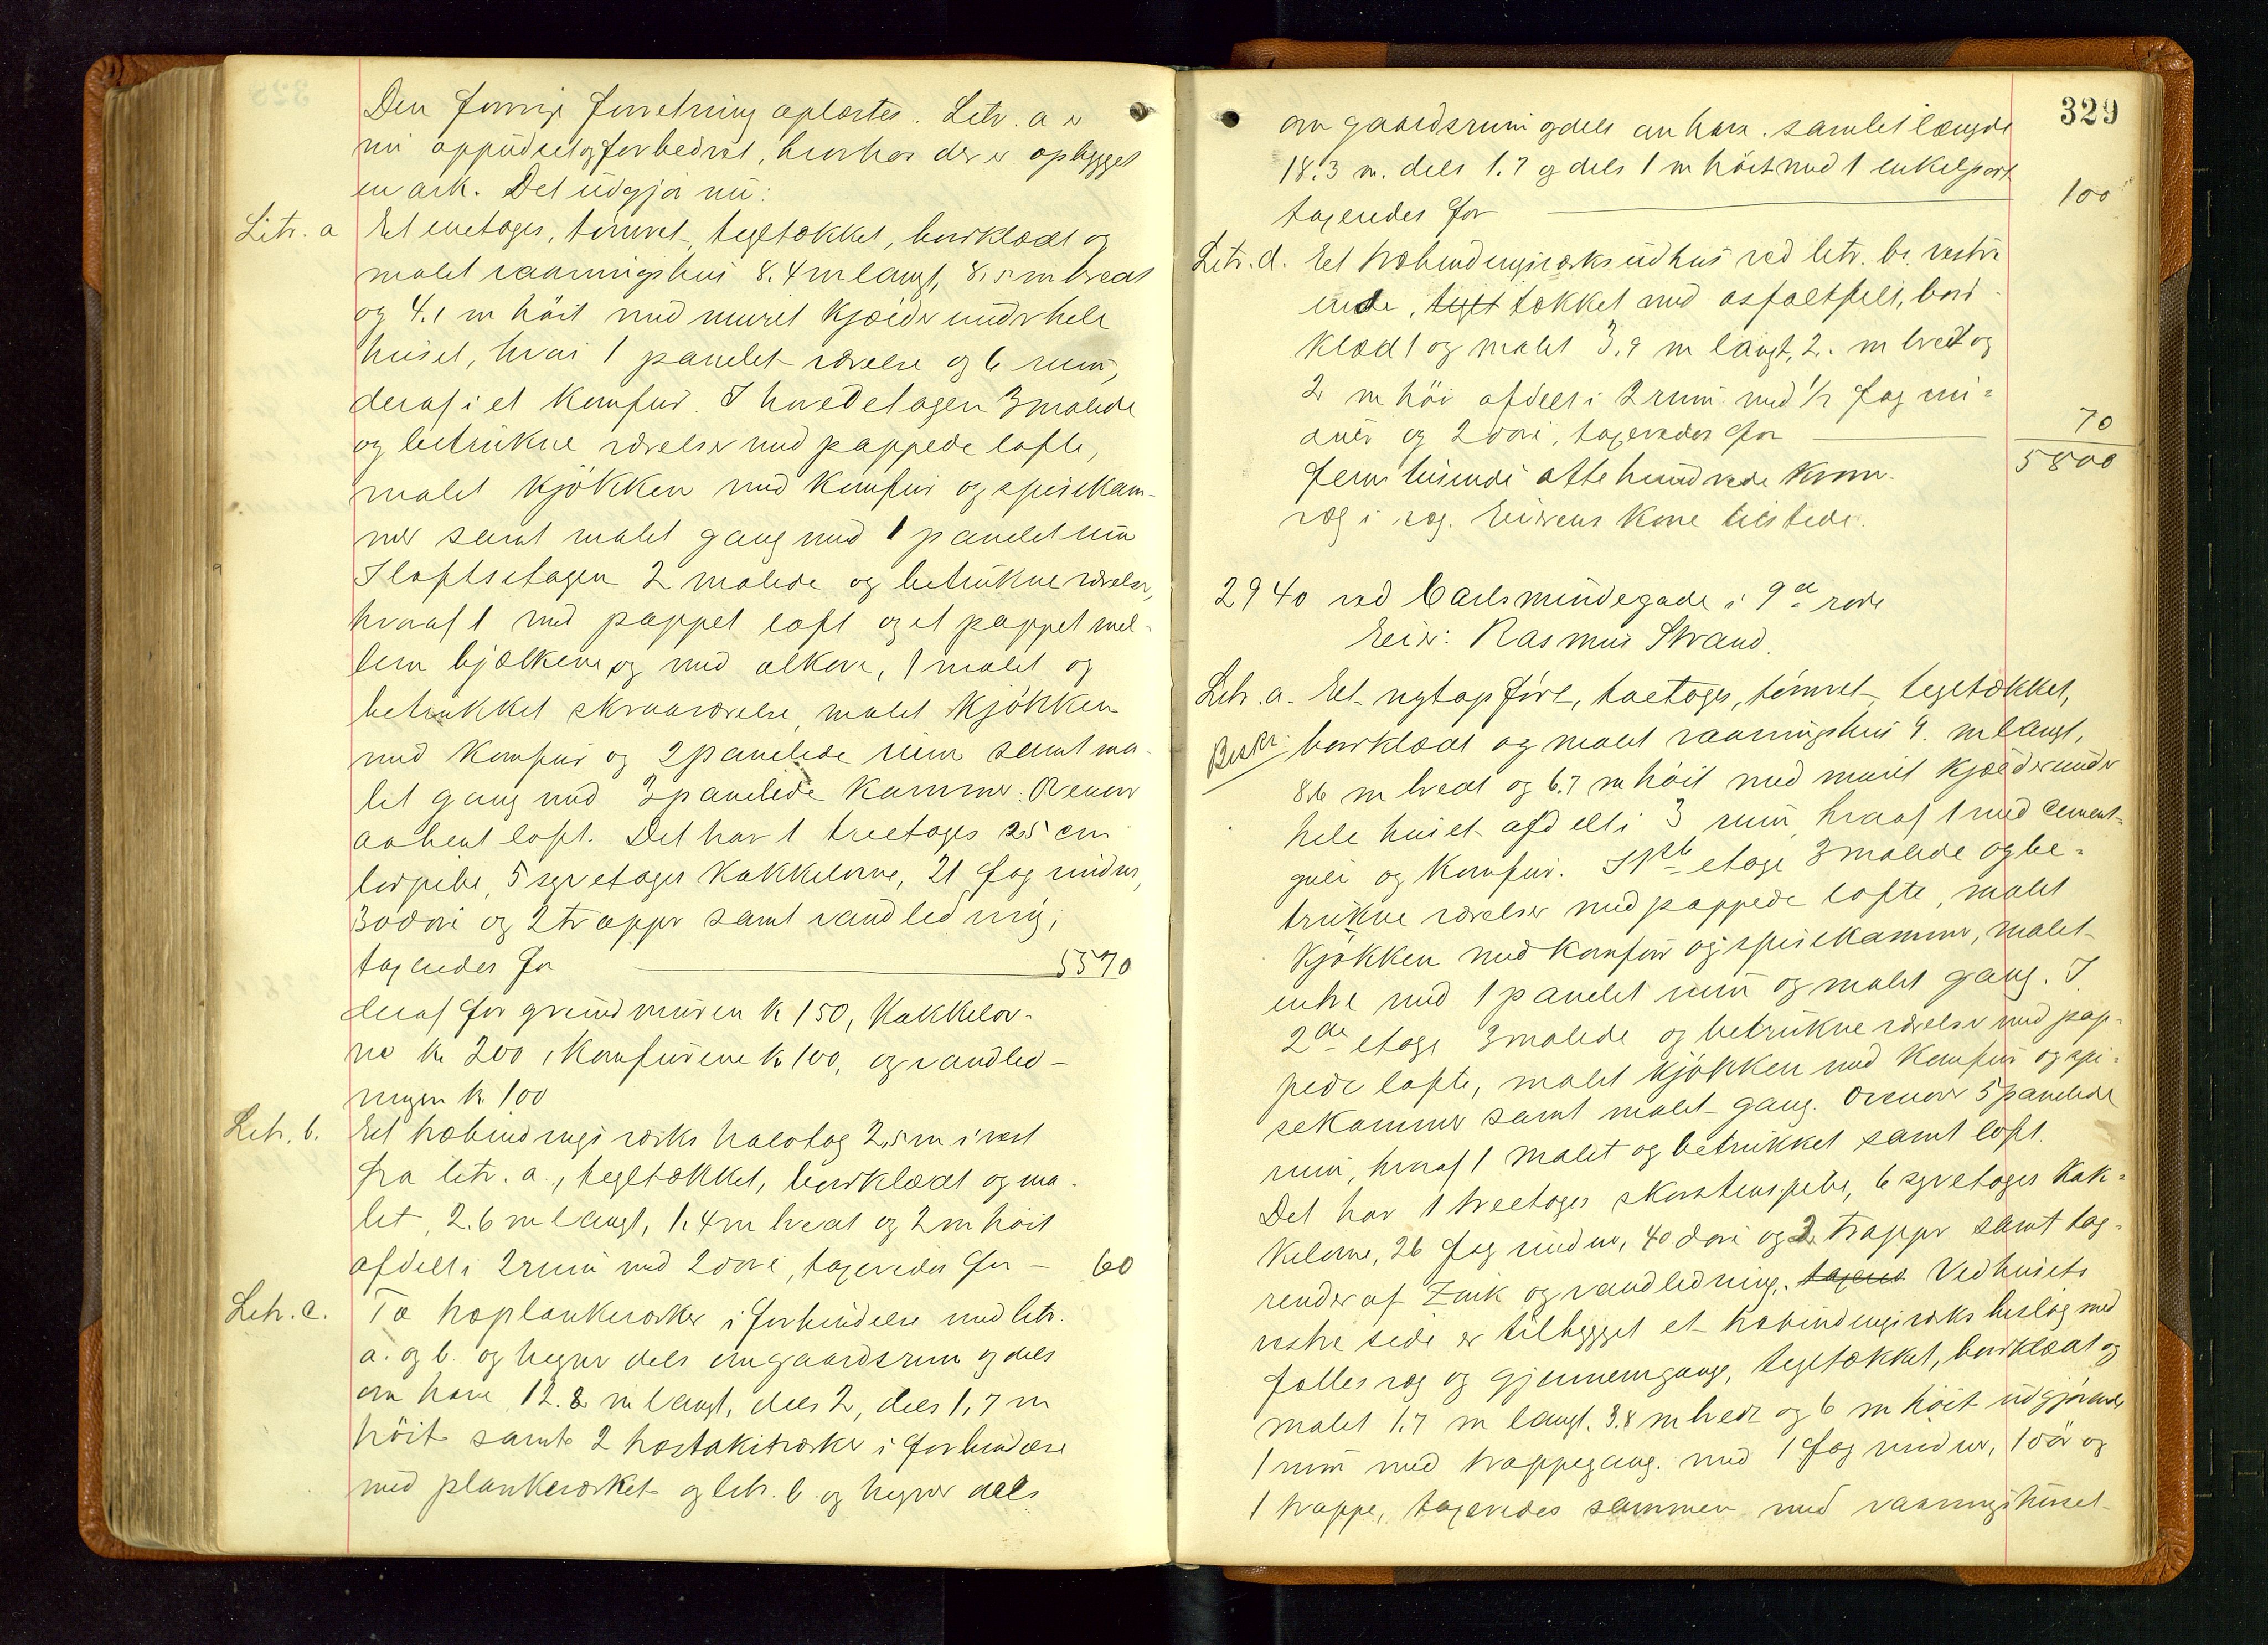 Den forrige forretning oplæstes. Litr. a er
nu oppudset og forbedret, hvorhos der er opbygget
en ark. Det udgjør nu:
Litr. a Et enetages, tømret, tegltækket, bordklædt og
malet vaaningshus 8.4 m langt, 8,5 m bredt
og 4.1 m høit med muret kjælder under hele
huset, hvori 1 panelet værelse og 6 rum,
deraf i et komfur. I hovedetagen 3 malede
og betrukne værelser med pappede lofte,
malet kjøkken med komfur og spisekam-
mer samt malet gang med 1 panelet rum
I loftsetagen 2 malede og betrukne værelser,
hvoraf 1 med pappet loft og et pappet mel-
lem bjælkerne og med alkove, 1 malet og
betrukket skraaværelse, malet kjøkken
med komfur og 2 panelede rum samt ma-
let gang med 3 panelede kammer. Ovenover
aabent loft. Det har 1 treetages 25 cm
borpibe, 5 syvetages kakkelovne, 21 fag vinduer,
30 døre og 2 trapper samt vandledning,
taxeredes for 5570
deraf for grundmuren k 150, kakkelov-
ne k 200, komfurene k 100, og vandled-
ningen k 100
Litr. b. Et træbindingsværks halvtag 2,5 m i vest
fra litr. a., tegltækket, bordklædt og ma-
let, 2.6 m langt, 1.4 m bredt og 2 m høit
afdelt i 2 rum med 2 døre, taxeredes for – 60
Litr. c. To træplankeværker i forbindelse med litr.
a. og b. og hegner dels om gaardsrum og dels
om have 12.8 m langt, dels 2, dels 1,7 m
høit samt 2 træstakitværker i forbindelse
med plankeværket og litr. b. og hegner dels
329
om gaardsrum og dels om have. samlet længde
18.3 m. dels 1.7 og dels 1 m høit med 1 enkel port
taxeredes for 100
Litr. d. Et træbindingsværks udhus ved litr. b's vestre
ende, teglt tækket med asfaltfilt, bord-
klædt og malet 3.9 m langt, 2. m bredt og
2 m høi afdelt i 2 rum med 1/2 fag vin-
duer og 2 døre, taxeredes for 70
5800
femtusinde otte hundrede kroner.
væg i væg. Eierens kone tilstede.
2940 ved Carlsmindegade i 9de rode
Eier: Rasmus Strand.
Litr. a. Et nyt opført, toetages, tømret, tegltækket,
Beskr. bordklædt og malet vaaningshus 9. m langt,
8.6 m bredt og 6.7 m høit med muret kjælder under
hele huset afdelt i 3 rum, hvoraf 1 med cement-
gulv og komfur. I 1ste etage 3 malede og be-
trukne værelser med pappede lofte, malet
kjøkken med komfur og spisekammer, malet
entre med 1 panelet rum og malet gang. I
2den etage 3 malede og betrukne værelser med pap-
pede lofte, malet kjøkken med komfur og spi-
sekammer samt malet gang. Ovenover 5 panelede
rum, hvoraf 1 malet og betrukket samt loft.
Det har 1 treetages skorstenspibe, 6 syvetages kak-
kelovne, 26 fag vinduer, 40 døre og 2 trapper samt tag-
render af Zink og vandledning. taxered Ved husets
vestre side er tilbygget et træbindingsværks bislag med
fælles væg og gjennemgang, tegltækket, bordklædt og
malet 1.7 m langt, 3.8 m bredt og 6 m høit udgjørende
1 rum med trappegang. med 1 fag vinduer, 1 dør og
1 trappe, taxeredes sammen med vaaningshuset